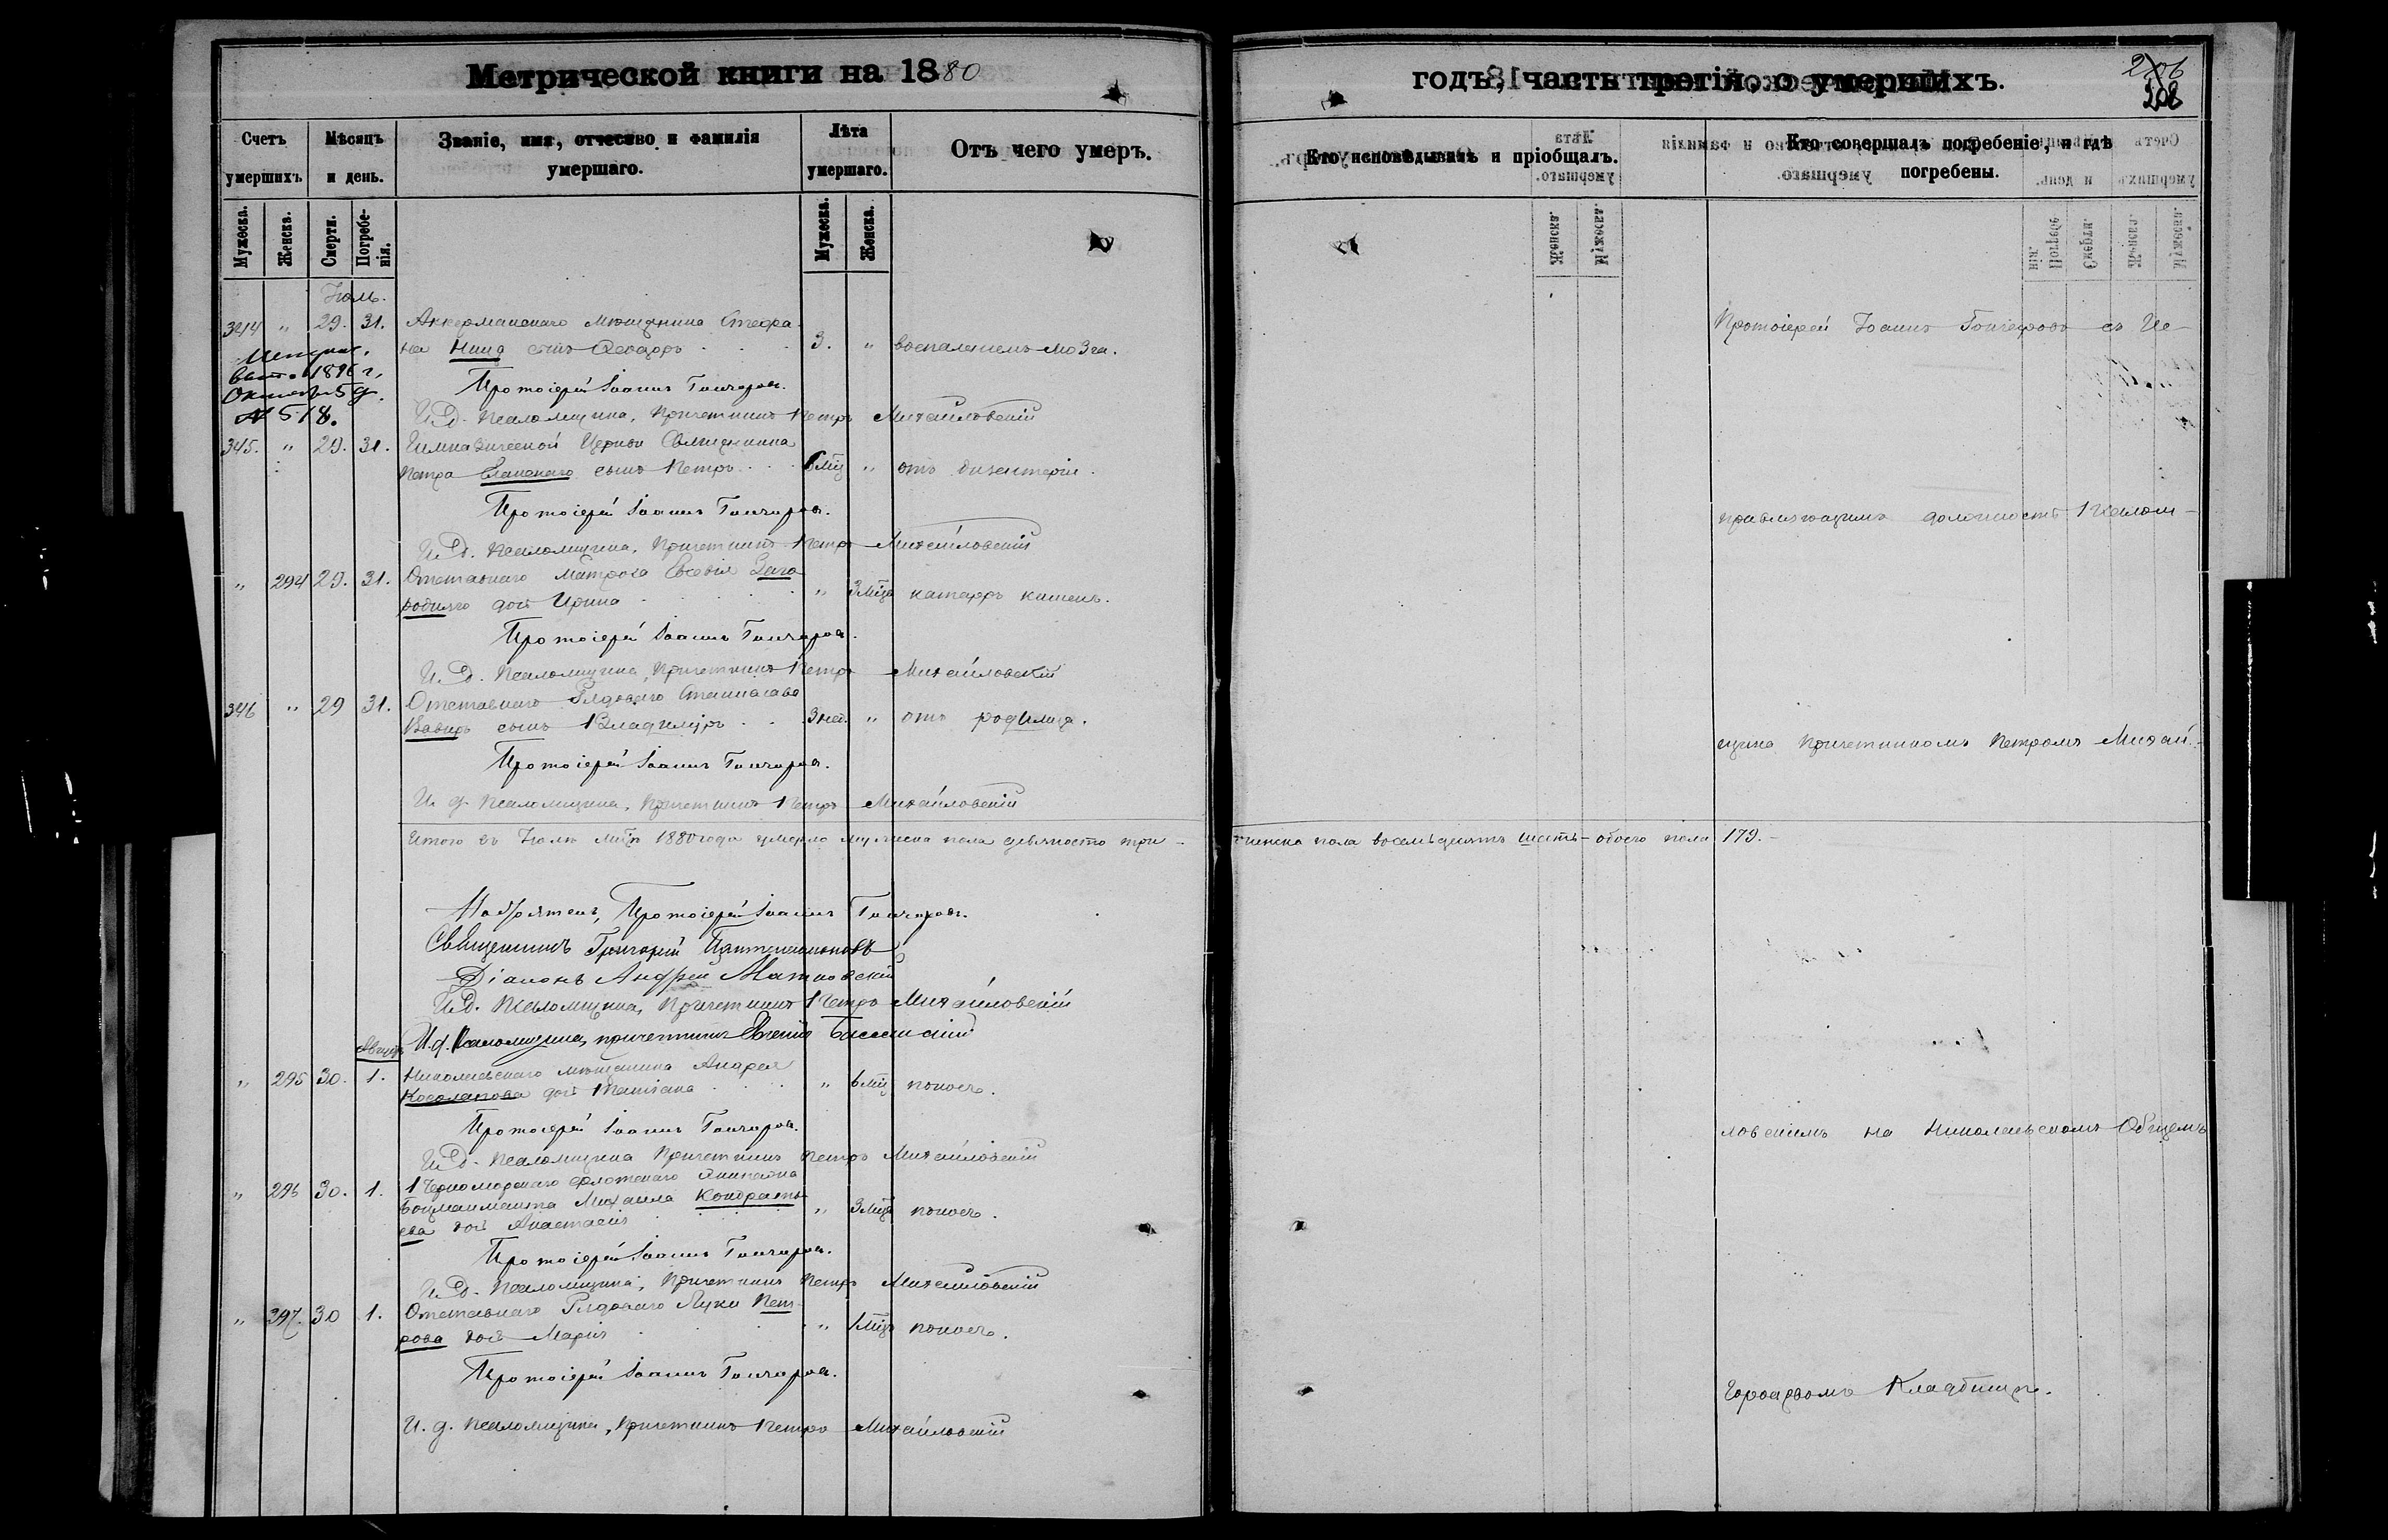 Метрической книги на 1880
Счетъ умершихъ
Мѣсяцъ и день.
Званіе, имя, отчество и фамилія умершаго.
Лѣта умершаго.
Отъ чего умеръ.
Мужеска.
Женска.
Смерти.
Погребенія.
Мужеска.
Женска.
Іюль.
" 29. 31. Аккерманскаго мѣщанина Стефа-
на сынъ Ѳеодоръ 3. " воспаленіемъ мозга.
1896 г.
№ 518.
Протоіерей Іоаннъ Гончаровъ.
И. д. Псаломщика, Причетникъ Петръ Михайловскій
345. " 29. 31. Гимназической Церкви Священника
Петра сынъ Петръ 6 мц " отъ дизентеріи.
Протоіерей Іоаннъ Гончаровъ.
И. д. Псаломщика, Причетникъ Петръ Михайловскій
" 294 29. 31. Отставнаго Матроса Евсевія Заго-
родняго доч Ирина " 3 мца катарръ кишекъ.
Протоіерей Іоаннъ Гончаровъ.
И. д. Псаломщика, Причетникъ Петръ Михайловскій
346 " 29 31. Отставнаго Рядоваго Станислава
сынъ Владиміръ 3 нед. " отъ родимца.
Протоіерей Іоаннъ Гончаровъ.
И. д. Псаломщика, Причетникъ Петръ Михайловскій
Итого въ Іюлѣ мцѣ 1880 года умерло мужеска пола девяносто три -
Протоіерей Іоаннъ Гончаровъ.
Священникъ Григорій
Діаконъ Андрей
И. д. Псаломщика, Причетникъ Петръ Михайловскій
И. д. Псаломщика, причетникъ Евгеній
Августъ
" 295 30. 1. Николаевскаго мѣщанина Андрея
Косолапова доч Татіана " 6 мц поносъ.
Протоіерей Іоаннъ Гончаровъ.
И. д. Псаломщика Причетникъ Петръ Михайловскій
" 296 30. 1. 1 Черноморскаго флотскаго Экипажа
Боцманмаита Михаила Кондрать-
ева доч Анастасія " 3 мца поносъ.
Протоіерей Іоаннъ Гончаровъ.
И. д. Псаломщика, Причетникъ Петръ Михайловскій
" 397. 30 1. Отставнаго Рядоваго Луки Пет-
рова доч Марія " 1 мцъ поносъ.
Протоіерей Іоаннъ Гончаровъ.
И. д. Псаломщика, Причетникъ Петръ Михайловскій
годъ, часть третія, о умершихъ.
206
208
Кто исповѣдывалъ и пріобщалъ.
Кто совершалъ погребеніе, и гдѣ погребены.
Протоіерей Іоаннъ Гончаровъ съ Ис-
правляющимъ должность Псалом-
щика Причетникомъ Петромъ Михай-
женска пола восемьдесятъ шесть - обоего пола 179.-
ловскимъ на Николаевскомъ Общемъ
Городскомъ Кладбищѣ.